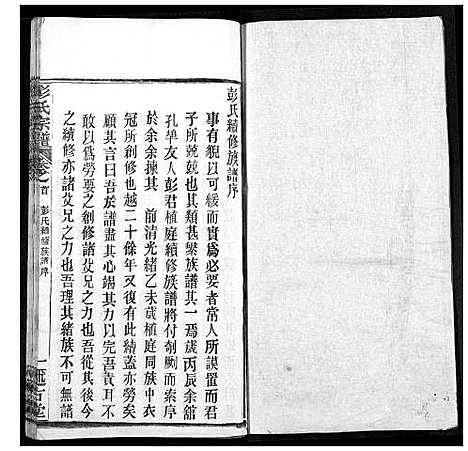 彭氏續修族譜序
事有貎以可緩而實爲必要者常人所謨置而君
子所兢兢也其類甚繁族譜其一焉歲丙辰余舘
孔學友人彭君植庭續修族譜將付剞劂而索序
於余余揀其 前清光緒乙未歲植庭同族中衣
冠所創修也越二十餘年又復有此緒蓋亦勞矣
顧其言曰吾族譜盡其心竭其力以完吾責耳不
敢以爲勞要之創修諸父兄之力也吾從其後
之續修亦諸父兄之力也吾理其緒族不可無譜
彭氏宗譜 卷之首 彭氏續修族譜序 一